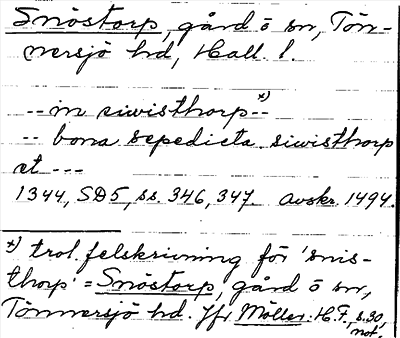 Snöstorp, gård o sn, Tön-
nersjö hd, Hall. l.
-- in siwisthorp x) --
-- bona sepedicta siwisthorp
et ---
1344, SD5, ss. 346, 347. avskr. 1494.
x) trol. felskrivning för 'snis-
thorp' = Snöstorp, gård o sn,
Tönnersjö hd. Jfr Möller: H.F., s.30,
not.